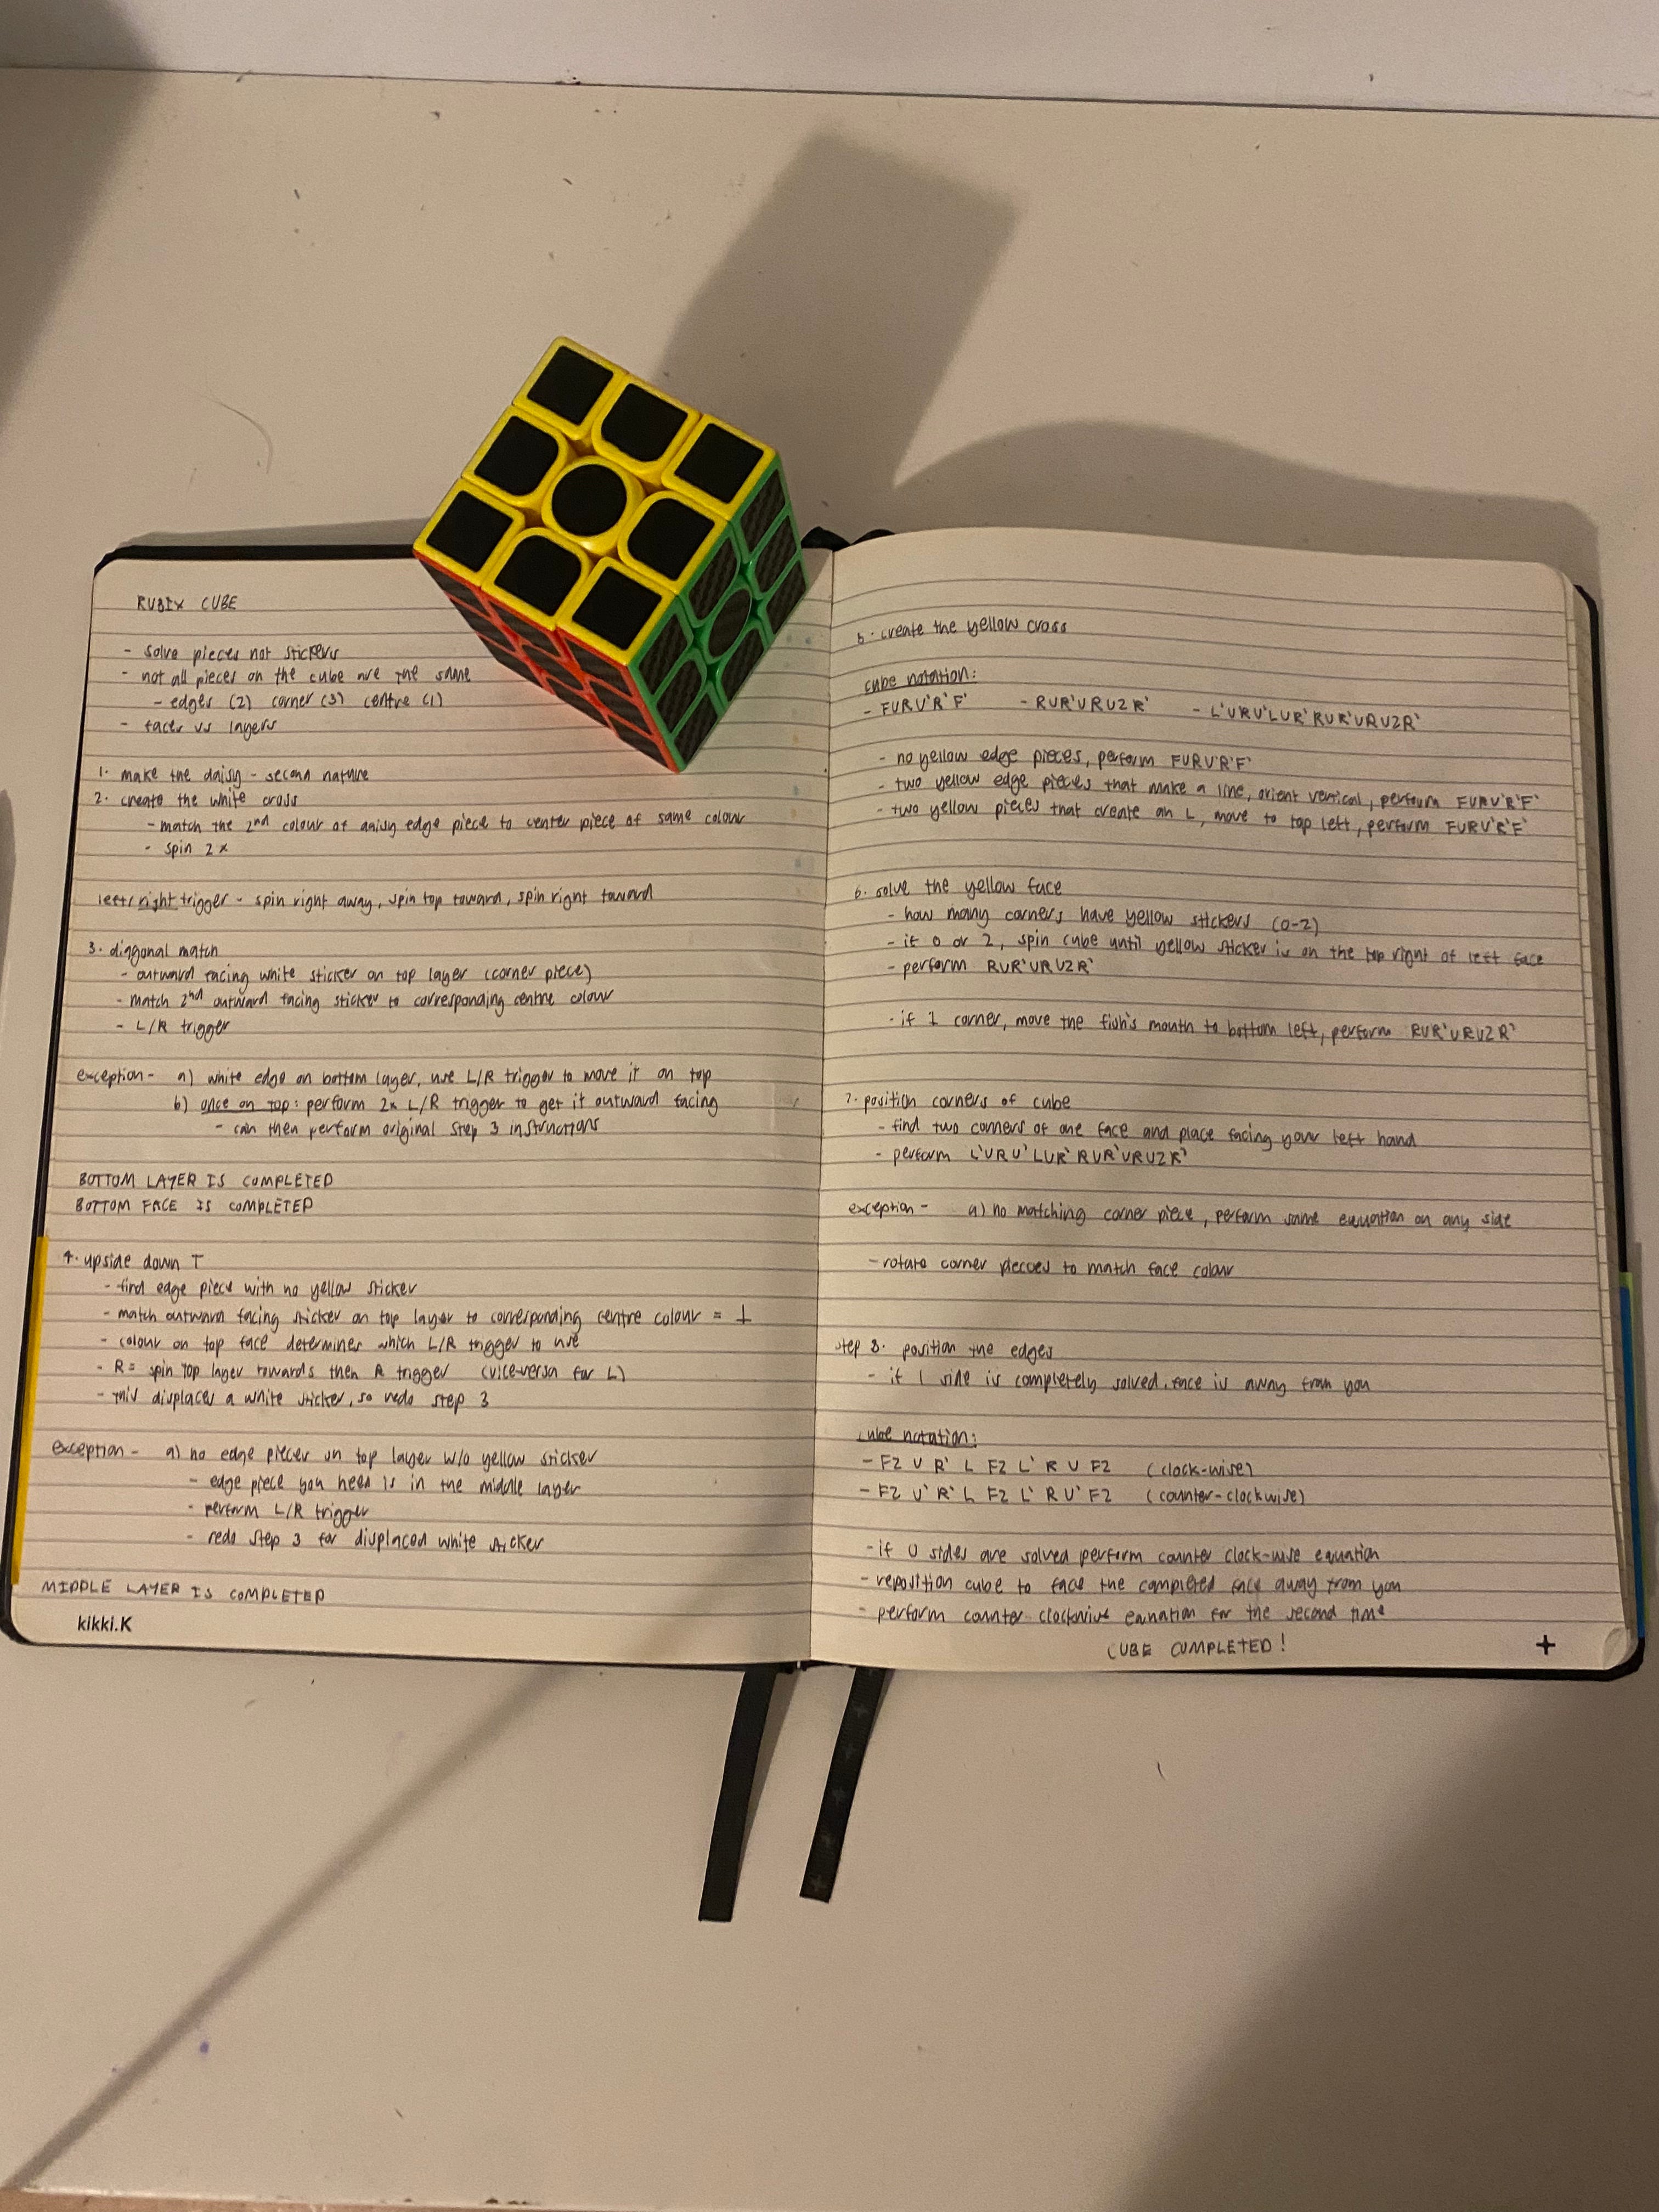 RUBIX CUBE
- solve pieces not stickers
- not all pieces on the cube are the same
- edges (2) corner (3) centre (1)
- faces vs layers
1. make the daisy - second nature
2. create the white cross
- match the 2nd colour of daisy edge piece to center piece of same colour
- spin 2x
left/right trigger - spin right away, spin top toward, spin right toward
3. diagonal match
- outward facing white sticker on top layer (corner piece)
- match 2nd outward facing sticker to corresponding centre colour
- L/R trigger
exception - a) white edge on bottom layer, use L/R trigger to move it on top
b) once on top: perform 2x L/R trigger to get it outward facing
- can then perform original step 3 instructions
BOTTOM LAYER IS COMPLETED
BOTTOM FACE IS COMPLETED
4. upside down T
- find edge piece with no yellow sticker
- match outward facing sticker on top layer to corresponding centre colour = ⊥
- colour on top face determines which L/R trigger to use
- R = spin top layer towards then R trigger (vice-versa for L)
- this displaces a white sticker, so redo step 3
exception - a) no edge pieces on top layer w/o yellow sticker
- edge piece you need is in the middle layer
- perform L/R trigger
- redo step 3 for displaced white sticker
MIDDLE LAYER IS COMPLETED
kikki.K
5. create the yellow cross
cube notation:
- FURU'R'F' - RUR'URU2R' - L'URU'LUR'RUR'URU2R'
- no yellow edge pieces, perform FURU'R'F'
- two yellow edge pieces that make a line, orient vertical, perform FURU'R'F'
- two yellow pieces that create an L, move to top left, perform FURU'R'F'
6. solve the yellow face
- how many corners have yellow stickers (0-2)
- if 0 or 2, spin cube until yellow sticker is on the top right of left face
- perform RUR'URU2R'
- if 1 corner, move the fish's mouth to bottom left, perform RUR'URU2R'
7. position corners of cube
- find two corners of one face and place facing your left hand
- perform L'URU'LUR'RUR'URU2R'
exception - a) no matching corner piece, perform same equation on any side
- rotate corner pieces to match face colour
step 8. position the edges
- if 1 side is completely solved, face is away from you
cube notation:
- F2 U R' L F2 L' R U F2 (clock-wise)
- F2 U' R' L F2 L' R U' F2 (counter-clockwise)
- if 0 sides are solved perform counter clock-wise equation
- reposition cube to face the completed face away from you
- perform counter clockwise equation for the second time
CUBE COMPLETED!